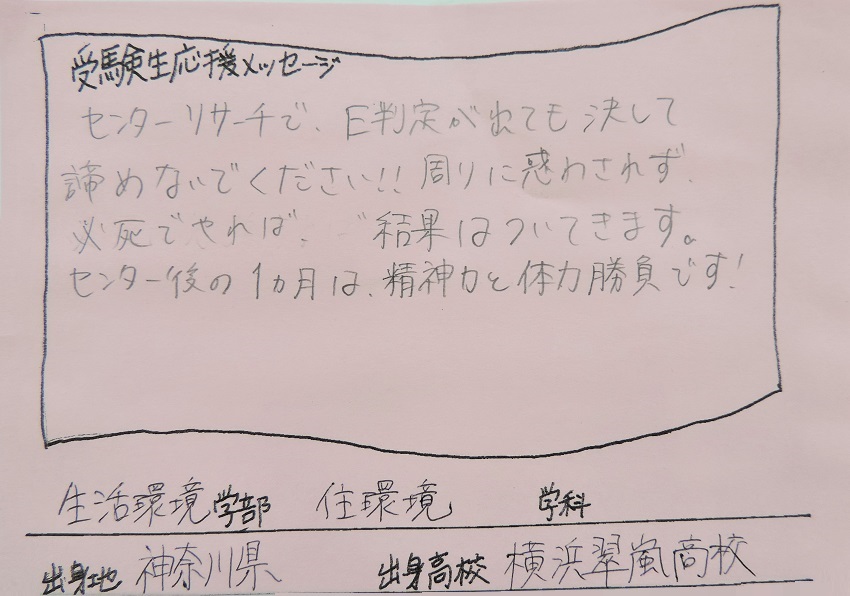 受験生応援メッセージ
センターリサーチで、E判定が出ても決して
諦めないでください!! 周りに惑わされず、
必死でやれば、結果はついてきます。
センター後の1ヵ月は、精神力と体力勝負です!
生活環境学部 住環境 学科
出身地 神奈川県 出身高校 横浜翠嵐高校